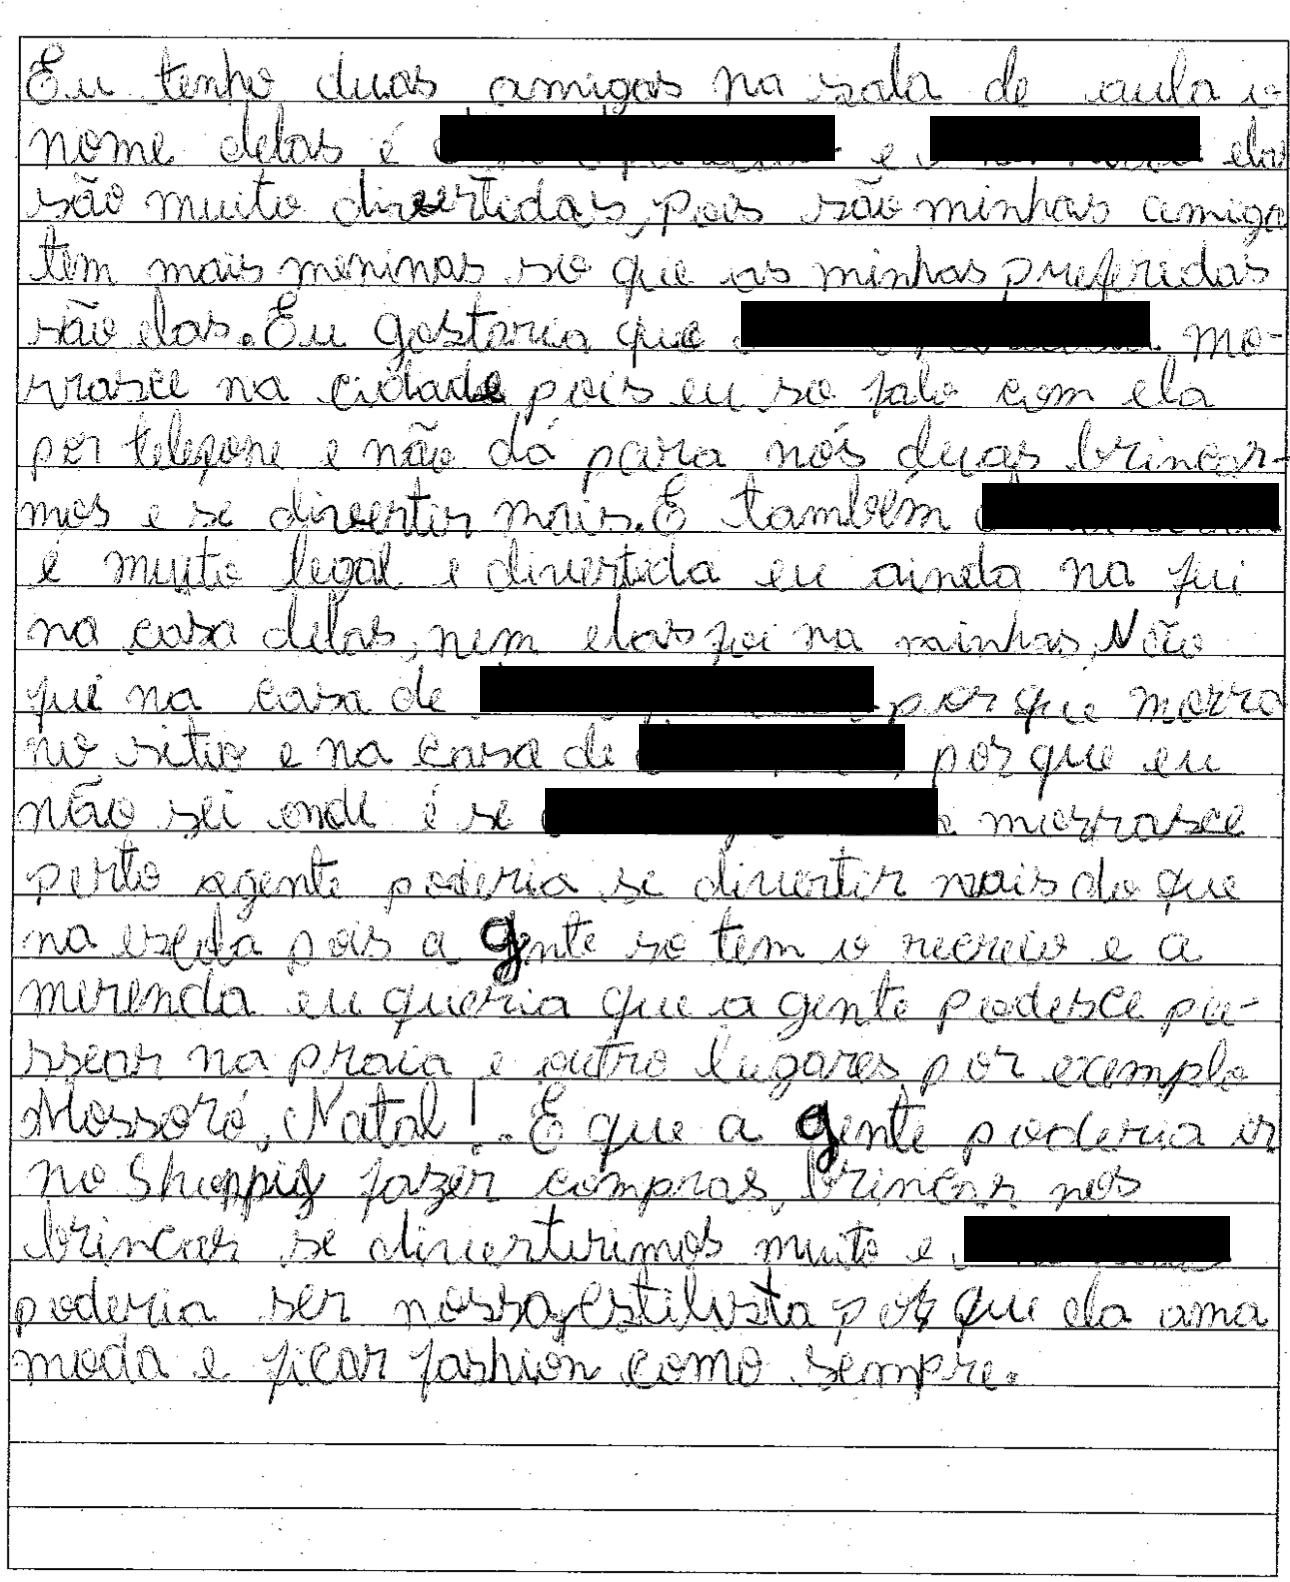 Eu tenho duas amigas na sala de aula o
nome delas é e elas
são muito divertidas, pois são minhas amiga
tem mais meninas so que as minhas preferidas
são elas. Eu gostaria que mo-
rrasce na cidade pois eu so falo com ela
por telefone e não dá para nós duas brincar-
mos e se divertir mais. E também
é muito legal e divertida eu ainda na fui
na casa delas, nem elas foi na minhas, Não
fui na casa de porque morro
no sitio e na casa de , porque eu
não sei onde é se morrasce
perto agente poderia se divertir mais do que
na escola pois a gente so tem o recreio e a
merenda eu queria que a gente podesce pa-
ssear na praia e outro lugares por exemplo
Mossoró, Natal!. E que a gente poderia ir
no Shoppig fazer compras, brincar nos
brincar se divertirimos muito e
poderia ser nossa estilista por que ela ama
moda e ficar fashion como sempre.